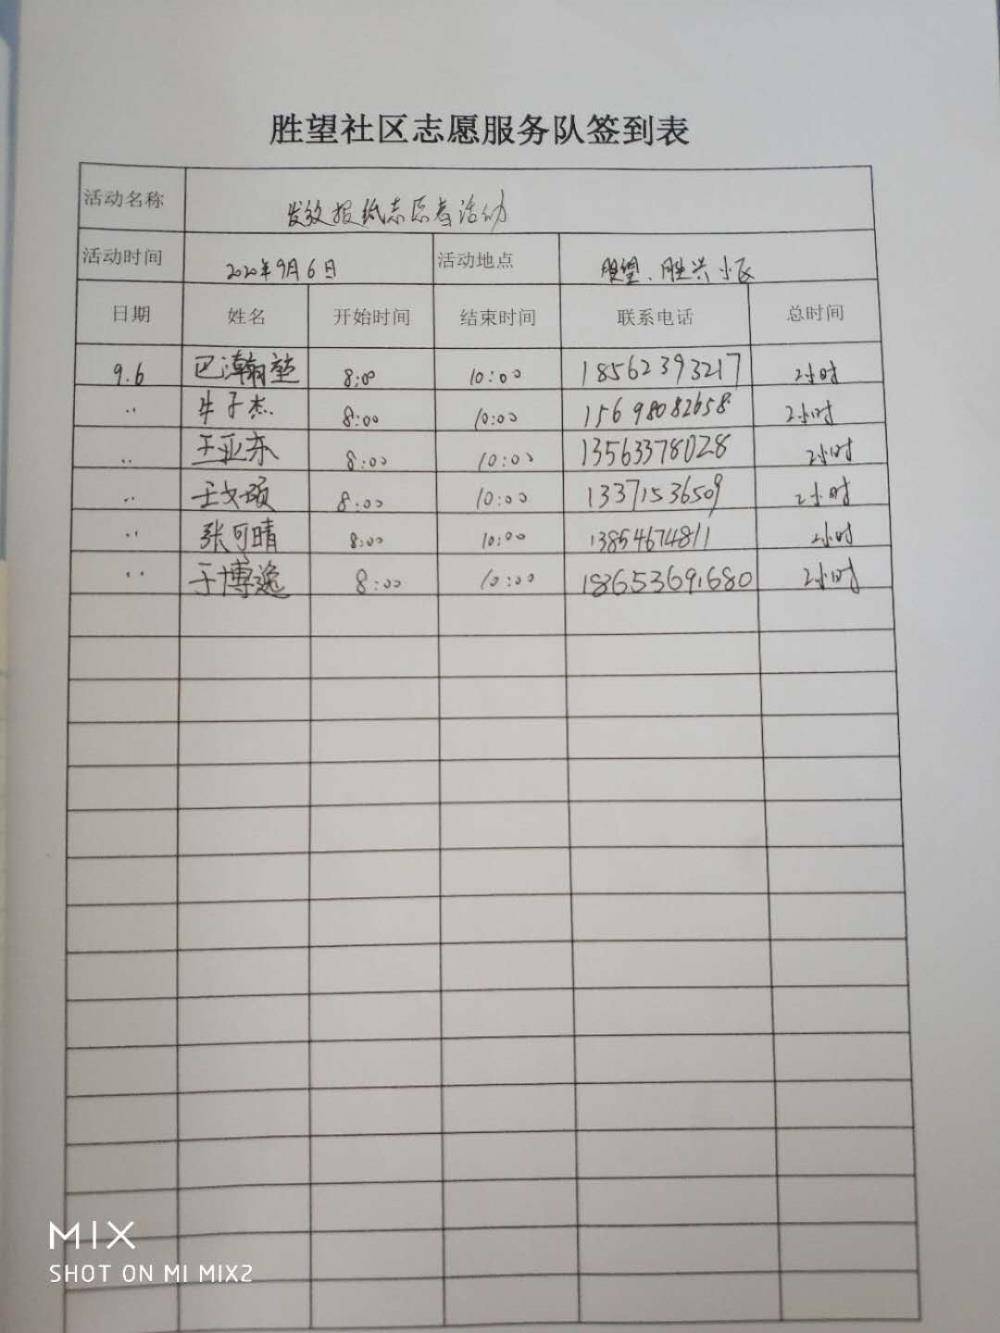 胜望社区志愿服务队签到表
活动名称 发放报纸志愿者活动
活动时间 2020年9月6日 活动地点 胜望、胜兴小区
日期 姓名 开始时间 结束时间 联系电话 总时间
9.6 巴瀚堃 8:00 10:00 18562393217 2小时
〃 牛子杰 8:00 10:00 15698082658 2小时
〃 王亚东 8:00 10:00 13563378028 2小时
〃 8:00 10:00 13371536509 2小时
〃 张可晴 8:00 10:00 13854674811 2小时
〃 于博逸 8:00 10:00 18653691680 2小时
MIX
SHOT ON MI MIX2